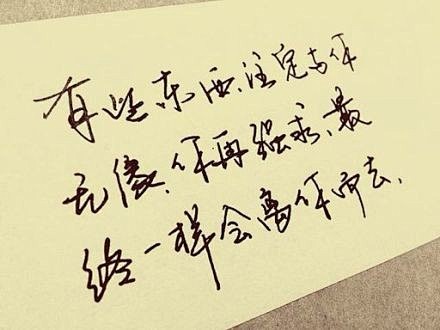 有些东西,注定与你
无缘,你再强求,最
终一样会离你而去,